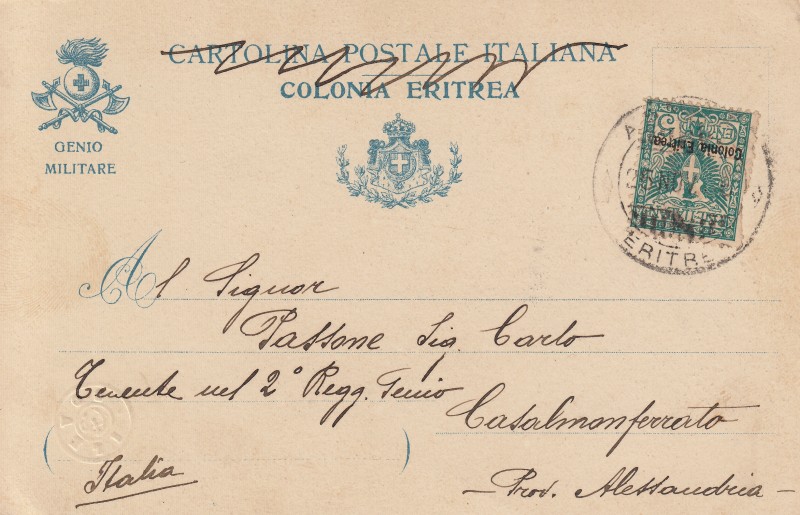 CARTOLINA POSTALE ITALIANA
COLONIA ERITREA
GENIO
MILITARE
Colonia Eritrea
ERITRE
Al Signor
Passone Sig. Carlo
Tenente nel 2° Regg. Genio
Casalmonferrato
(                    )
Italia
— Prov. Alessandria —